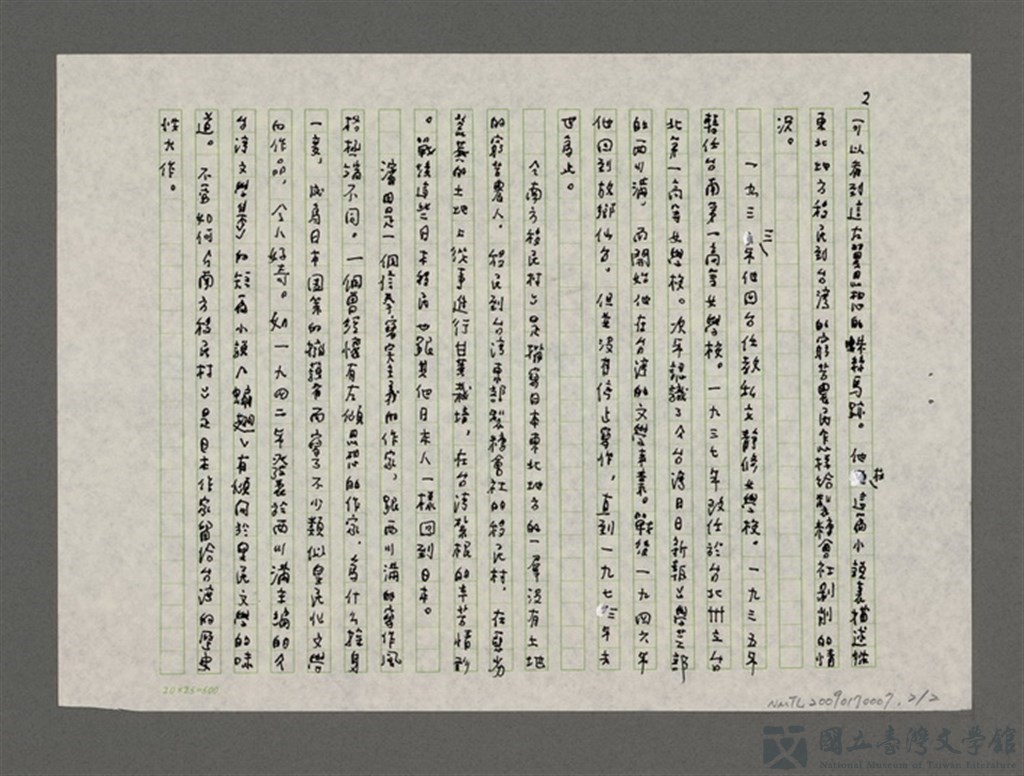 2
可以看到這左翼思想的蛛絲馬跡。他在這篇小說裏描述從
東北地方移民到台灣的窮苦農民怎樣給製糖會社剝削的情
況。
一九三三年他回台任教私立靜修女學校。一九三五年
轉任台南第一高等女學校。一九三七年改任於台北州立台
北第一高等女學校。次年認識了《台灣日日新報》學芸部
的西川滿，而開始他在台灣的文學事業。戰後一九四六年
他回到故鄉仙台。但並沒有停止寫作，直到一九七三年去
世為止。
《南方移民村》是描寫日本東北地方的一羣沒有土地
的窮苦農人，移民到台灣東部製糖會社的移民村，在惡劣
荒蕪的土地上從事進行甘蔗栽培，在台灣紮根的辛苦情形
。戰後這些日本移民也跟其他日本人一樣回到日本。
濱田是一個信奉寫實主義的作家，跟西川滿的寫作風
格極端不同。一個曾經懷有左傾思想的作家，為什么搖身
一變，成為日本國策的擁護者而寫了不少類似皇民化文學
的作品，令人好奇。如一九四二年發表於西川滿主編的《
台灣文學集》的短篇小說〈蝙翅〉有傾向於皇民文學的味
道。不管如何《南方移民村》是日本作家留給台灣的歷史
性大作。
20×25=500
NMTL20090170007, 2/2
國立臺灣文學館
National Museum of Taiwan Literature